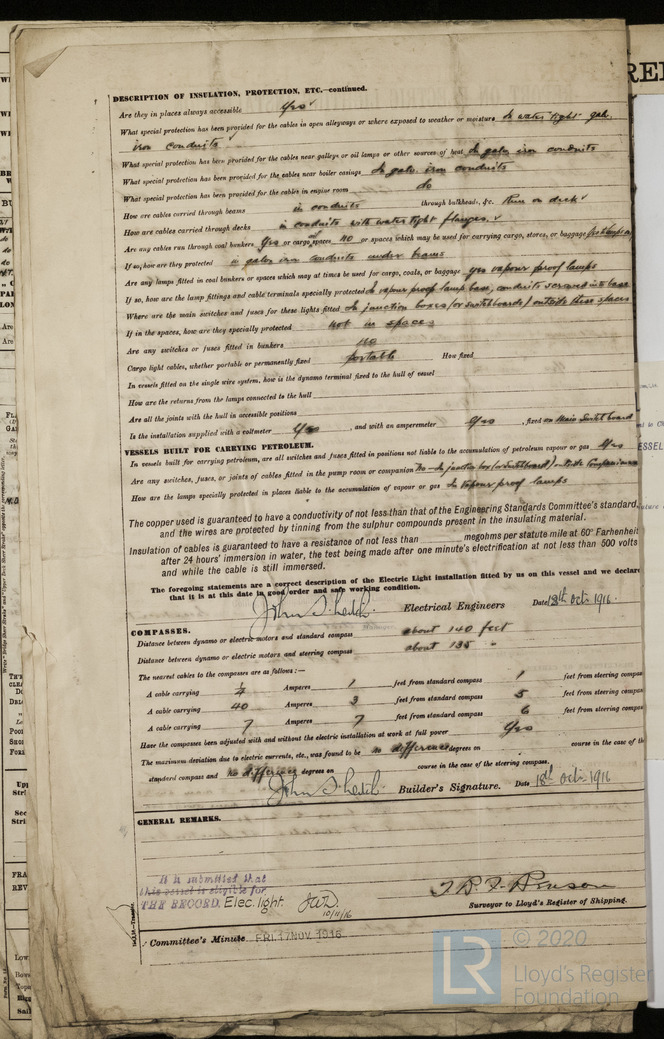 DESCRIPTION OF INSULATION, PROTECTION, ETC.—continued.
Are they in places always accessible Yes
What special protection has been provided for the cables in open alleyways or where exposed to weather or moisture In water tight galv.
iron conduits
What special protection has been provided for the cables near galleys or oil lamps or other sources of heat In galv. iron conduits
What special protection has been provided for the cables near boiler casings In galv. iron conduits
What special protection has been provided for the cables in engine room do
How are cables carried through beams in conduits through bulkheads, &c. Run on deck
How are cables carried through decks in conduits with water tight flanges.
Are any cables run through coal bunkers Yes or cargo spaces no or spaces which may be used for carrying cargo, stores, or baggage
If so, how are they protected in galv. iron conduits under beams
Are any lamps fitted in coal bunkers or spaces which may at times be used for cargo, coals, or baggage yes vapour proof lamps
If so, how are the lamp fittings and cable terminals specially protected In vapour proof lamp base, conduits screwed into base
Where are the main switches and fuses for these lights fitted In junction boxes (or switchboards) outside these spaces
If in the spaces, how are they specially protected not in spaces
Are any switches or fuses fitted in bunkers no
Cargo light cables, whether portable or permanently fixed portable How fixed
In vessels fitted on the single wire system, how is the dynamo terminal fixed to the hull of vessel
How are the returns from the lamps connected to the hull
Are all the joints with the hull in accessible positions
Is the installation supplied with a voltmeter Yes, and with an amperemeter Yes, fixed on Main Switchboard
VESSELS BUILT FOR CARRYING PETROLEUM.
In vessels built for carrying petroleum, are all switches and fuses fitted in positions not liable to the accumulation of petroleum vapour or gas Yes
Are any switches, fuses, or joints of cables fitted in the pump room or companion No - In junction box (or switchboard) outside Companion
How are the lamps specially protected in places liable to the accumulation of vapour or gas In vapour proof lamps
The copper used is guaranteed to have a conductivity of not less than that of the Engineering Standards Committee's standard,
and the wires are protected by tinning from the sulphur compounds present in the insulating material.
Insulation of cables is guaranteed to have a resistance of not less than megohms per statute mile at 60° Farhenheit
after 24 hours' immersion in water, the test being made after one minute's electrification at not less than 500 volts
and while the cable is still immersed.
The foregoing statements are a correct description of the Electric Light installation fitted by us on this vessel and we declare
that it is at this date in good order and safe working condition.
Electrical Engineers Date 18th Oct. 1916.
COMPASSES.
Distance between dynamo or electric motors and standard compass about 140 feet
Distance between dynamo or electric motors and steering compass about 135 "
The nearest cables to the compasses are as follows:—
A cable carrying Amperes 1 feet from standard compass 1 feet from steering compass
A cable carrying 40 Amperes 3 feet from standard compass 5 feet from steering compass
A cable carrying 7 Amperes 7 feet from standard compass 6 feet from steering compass
Have the compasses been adjusted with and without the electric installation at work at full power Yes
The maximum deviation due to electric currents, etc., was found to be no difference degrees on course in the case of the
standard compass and no difference degrees on course in the case of the steering compass.
Builder's Signature. Date 18th Oct. 1916
GENERAL REMARKS.
It is submitted that
this vessel is eligible for
THE RECORD. Elec. light. JWD. 10/11/16
Surveyor to Lloyd's Register of Shipping.
Committee's Minute FRI. 17 NOV. 1916
© 2020
Lloyd's Register
Foundation